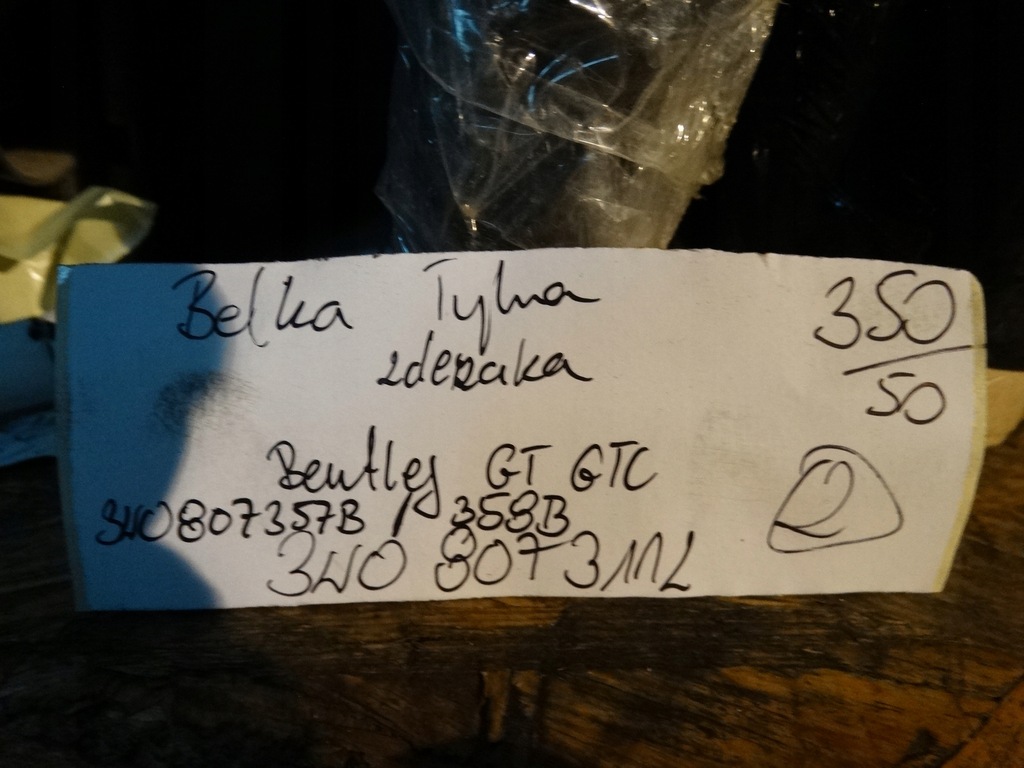 Belka Tylna
zderzaka
350
50
Bentley GT GTC
3W0807357B / 358B
3W0 807311L
2